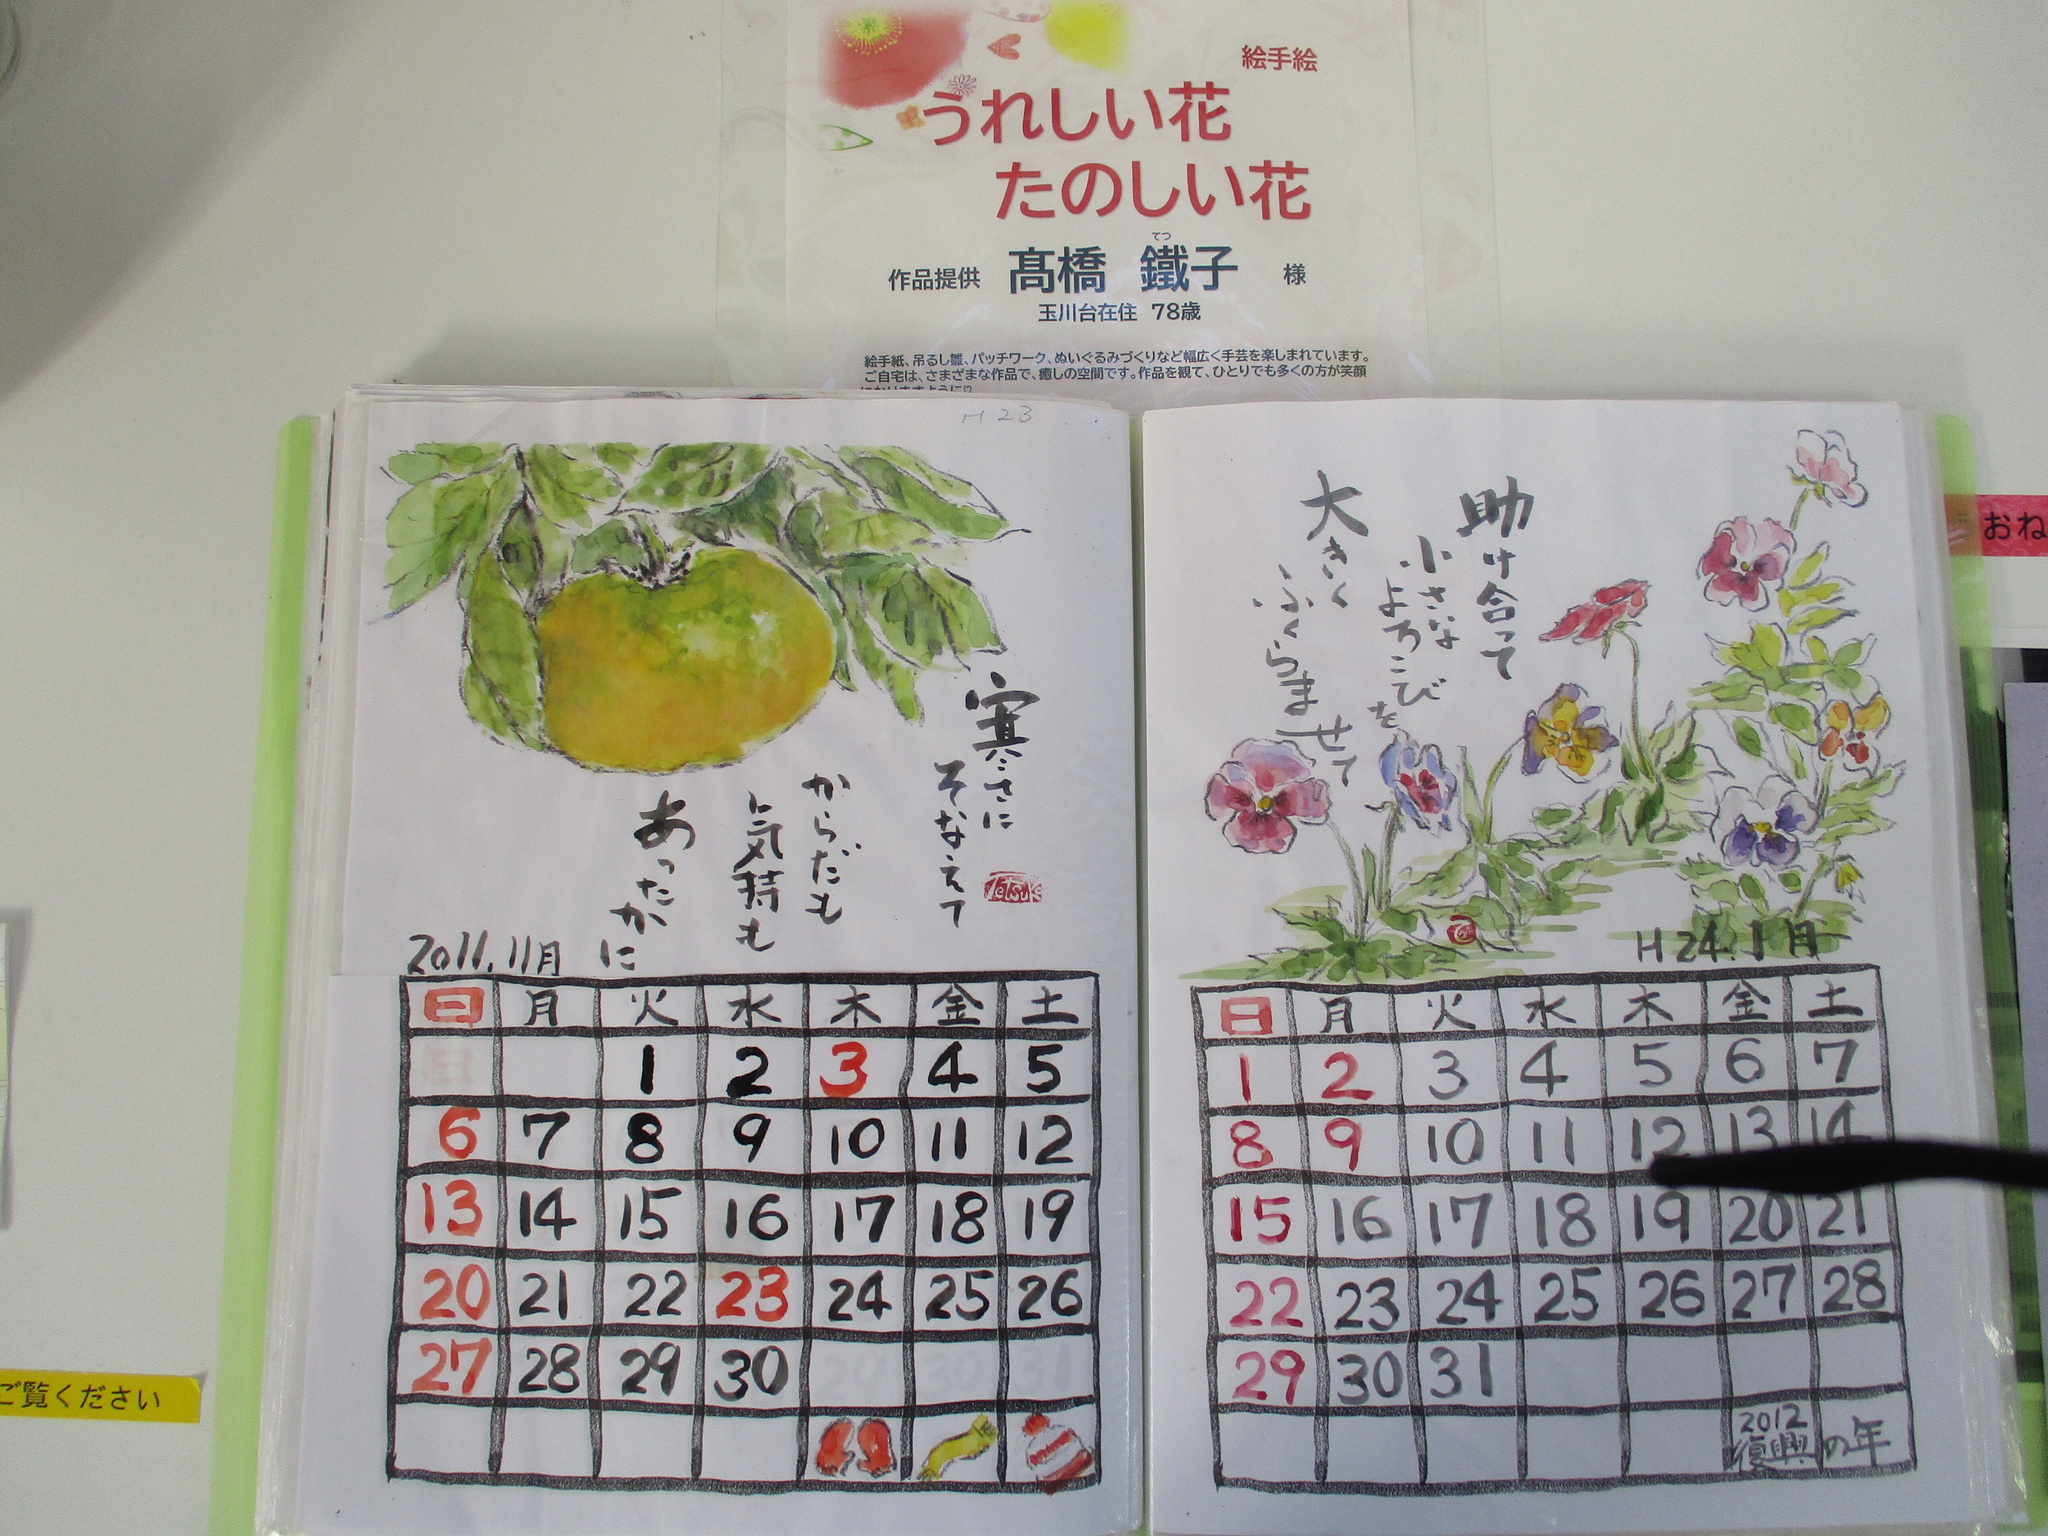 絵手絵
うれしい花
たのしい花
てつ
作品提供 髙橋 鐵子 様
玉川台在住 78歳
絵手紙、吊るし雛、パッチワーク、ぬいぐるみづくりなど幅広く手芸を楽しまれています。
ご自宅は、さまざまな作品で、癒しの空間です。作品を観て、ひとりでも多くの方が笑顔
H 23
寒さに
そなえて
からだも
気持も
あったか
に
Tetsuko
2011.11月
日 月 火 水 木 金 土
1 2 3 4 5
6 7 8 9 10 11 12
13 14 15 16 17 18 19
20 21 22 23 24 25 26
27 28 29 30
助け合って
小さな
よろこびを
大きく
ふくらませて
H24.1月
日 月 火 水 木 金 土
1 2 3 4 5 6 7
8 9 10 11 12 13 14
15 16 17 18 19 20 21
22 23 24 25 26 27 28
29 30 31
2012
復興の年
おね
ご覧ください